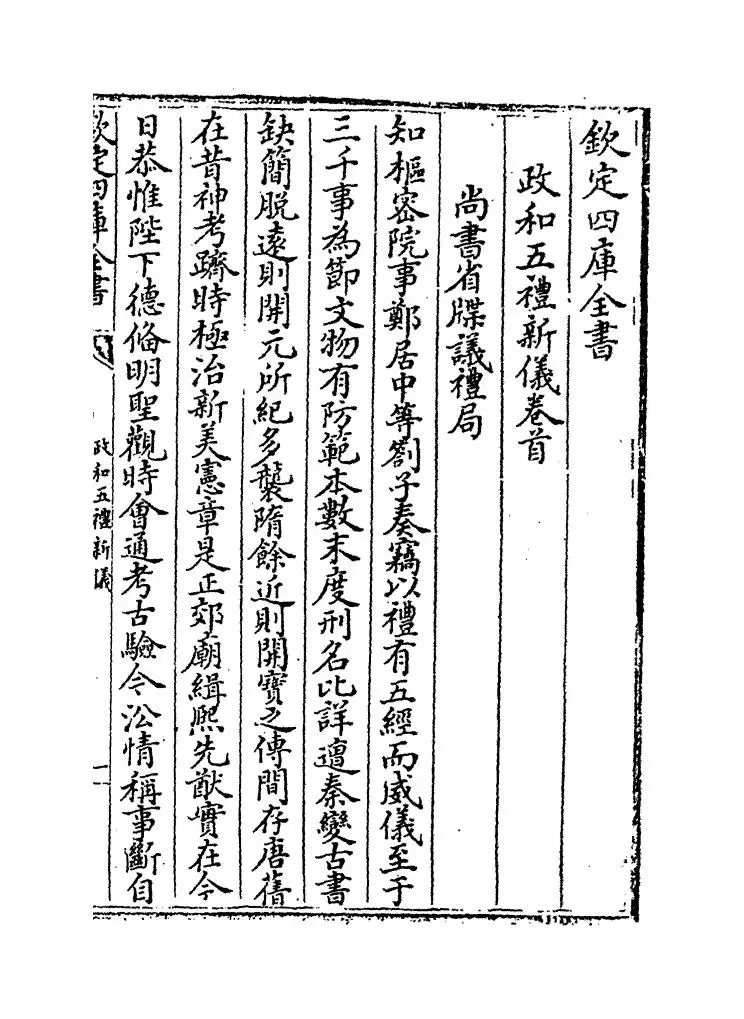 欽定四庫全書
政和五禮新儀卷首
尚書省牒議禮局
知樞密院事鄭居中等劄子奏竊以禮有五經而威儀至于
三千事為節文物有防範本數末度刑名比詳遭秦變古書
缺簡脫遠則開元所紀多襲隋餘近則開寶之傳間存唐舊
在昔神考躋時極治新美憲章是正郊廟緝熙先猷實在今
日恭惟陛下德備明聖觀時會通考古驗今沿情稱事斷自
欽定四庫全書
政和五禮新儀
一